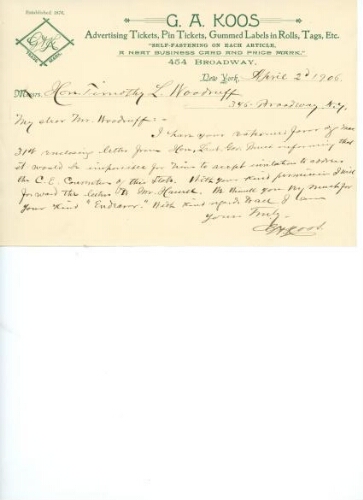 Established 1878.
G. A. KOOS
Advertising Tickets, Pin Tickets, Gummed Labels in Rolls, Tags, Etc.
"SELF-FASTENING ON EACH ARTICLE,
A NEAT BUSINESS CARD AND PRICE MARK."
454 BROADWAY.
TRADE MARK.
New York, April 2d 1906
Messrs. Hon. Timothy L. Woodruff
Broadway N.Y.
My dear Mr. Woodruff:-
I have your esteemed favor of
31st enclosing letter from Hon. Lieut. Gov. Bruce informing that
it would be impossible for him to accept invitation to address
the C.E. Convention of this State. With your kind permission I will
forward the letter to Mr. House. We thank you very much for
your kind "Endeavor." With kind regards, I am
Yours Truly
G A Koos